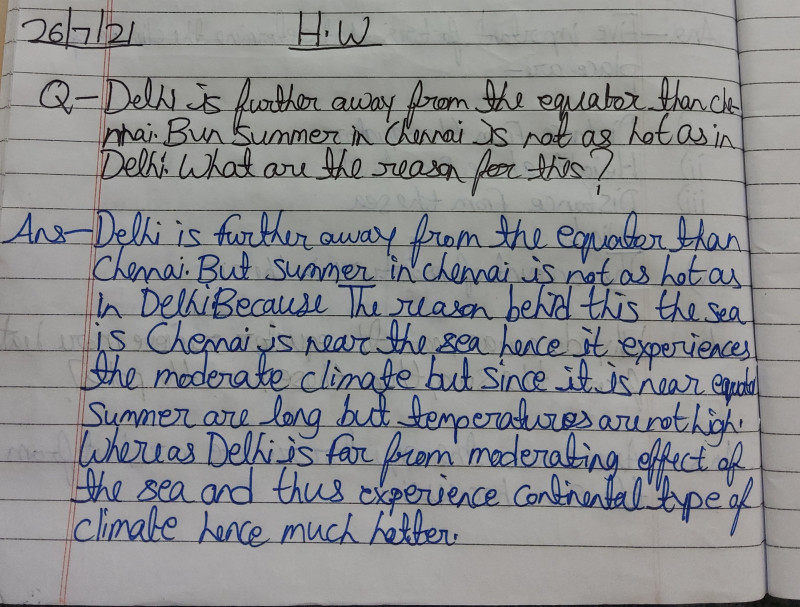 26/7/21 H.W
Q- Delhi is further away from the equator than che-
nnai. Bun Summer in Chennai is not as hot as in
Delhi. What are the reason for this?
Ans- Delhi is further away from the equator than
Chennai. But summer in chennai is not as hot as
in Delhi Because The reason behid this the sea
is Chennai is near the sea hence it experiences
the moderate climate but since it is near
Summer are long but temperatures are not high.
Whereas Delhi is far from moderating effect of
the sea and thus experience continental type of
climate hence much hotter.